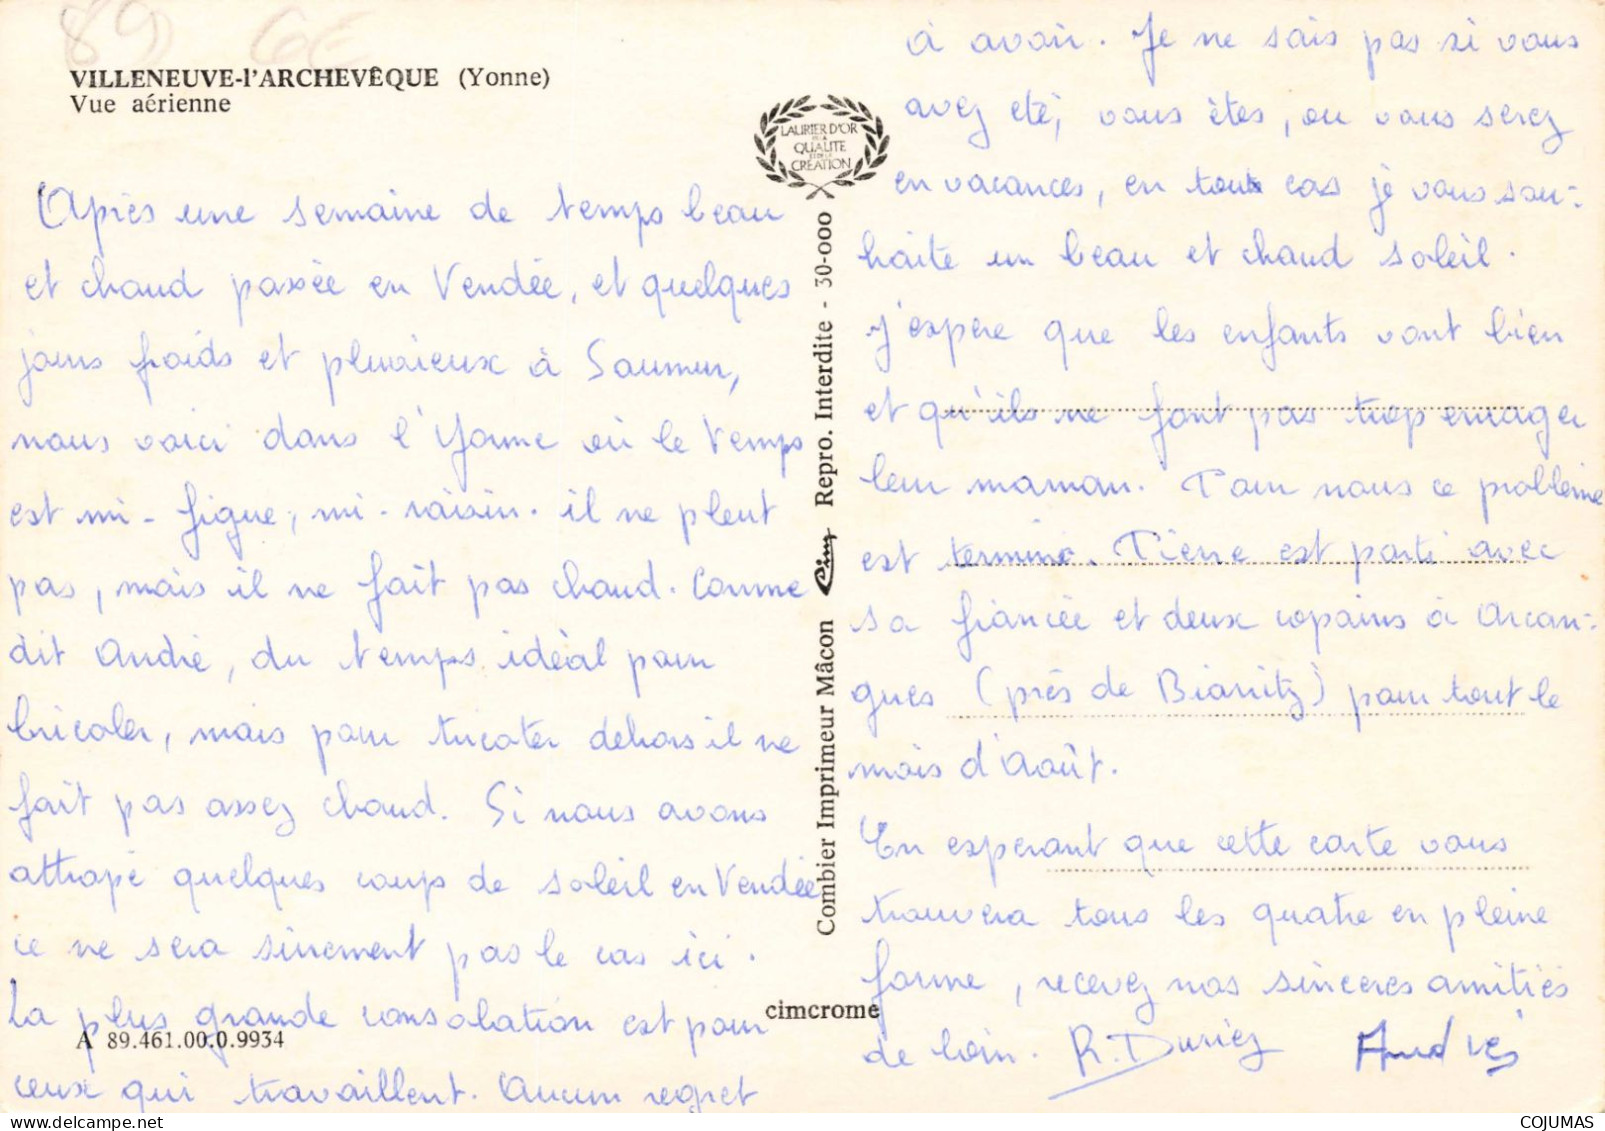 89 6E
VILLENEUVE-l'ARCHEVÊQUE (Yonne)
Vue aérienne
Après une semaine de temps beau
et chaud passée en Vendée, et quelques
jours froids et pluvieux à Saumur,
nous voici dans l'Yonne où le temps
est mi-figue, mi-raisin. il ne pleut
pas, mais il ne fait pas chaud. Comme
dit André, du temps idéal pour
bricoler, mais pour tricoter dehors il ne
fait pas assez chaud. Si nous avons
attrapé quelques coups de soleil en Vendée
ce ne sera sûrement pas le cas ici.
La plus grande consolation est pour
ceux qui travaillent. Aucun regret
A 89.461.00.0.9934
LAURIER D'OR
DE LA
QUALITE
ET DE LA
CREATION
Combier Imprimeur Mâcon Cim Repro. Interdite - 30-000
cimcrome
à avoir. Je ne sais pas si vous
avez eté, vous êtes, ou vous serez
en vacances, en tout cas je vous sou-
haite un beau et chaud soleil.
j'espère que les enfants vont bien
et qu'ils ne font pas trop enrager
leur maman. Pour nous ce problème
est terminé. Pierre est parti avec
sa fiancée et deux copains à Arcan-
gues (près de Biarritz) pour tout le
mois d'Août.
En esperant que cette carte vous
trouvera tous les quatre en pleine
forme, recevez nos sincères amitiés
de loin. R. Duriez André
COJUMAS